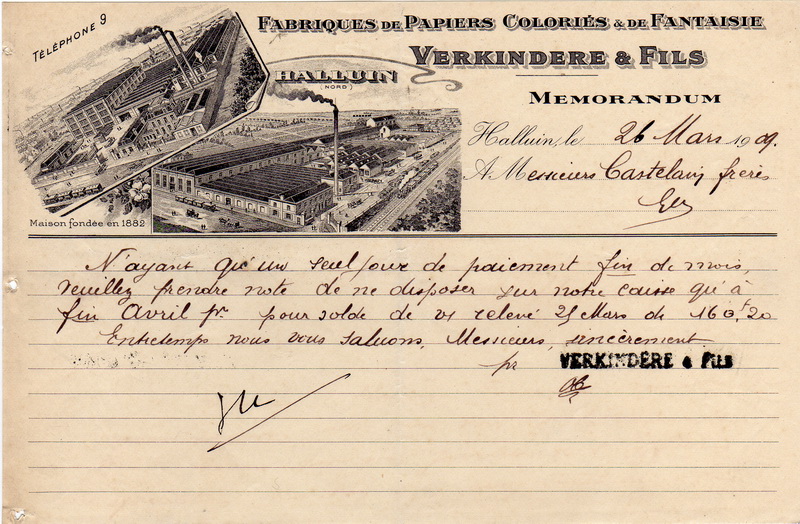 TÉLÉPHONE 9
FABRIQUES DE PAPIERS COLORIÉS & DE FANTAISIE
VERKINDERE & FILS
HALLUIN
(NORD)
MEMORANDUM
Halluin, le 26 Mars 1909.
A Messieurs Castelain frères
Maison fondée en 1882
N'ayant qu'un seul jour de paiement fin de mois,
veuillez prendre note de ne disposer sur notre caisse qu'à
fin Avril pr. pour solde de vs relevé 25 Mars de 160,f20
Entretemps nous vous saluons, Messieurs, sincèrement.
pr VERKINDÈRE & FILS